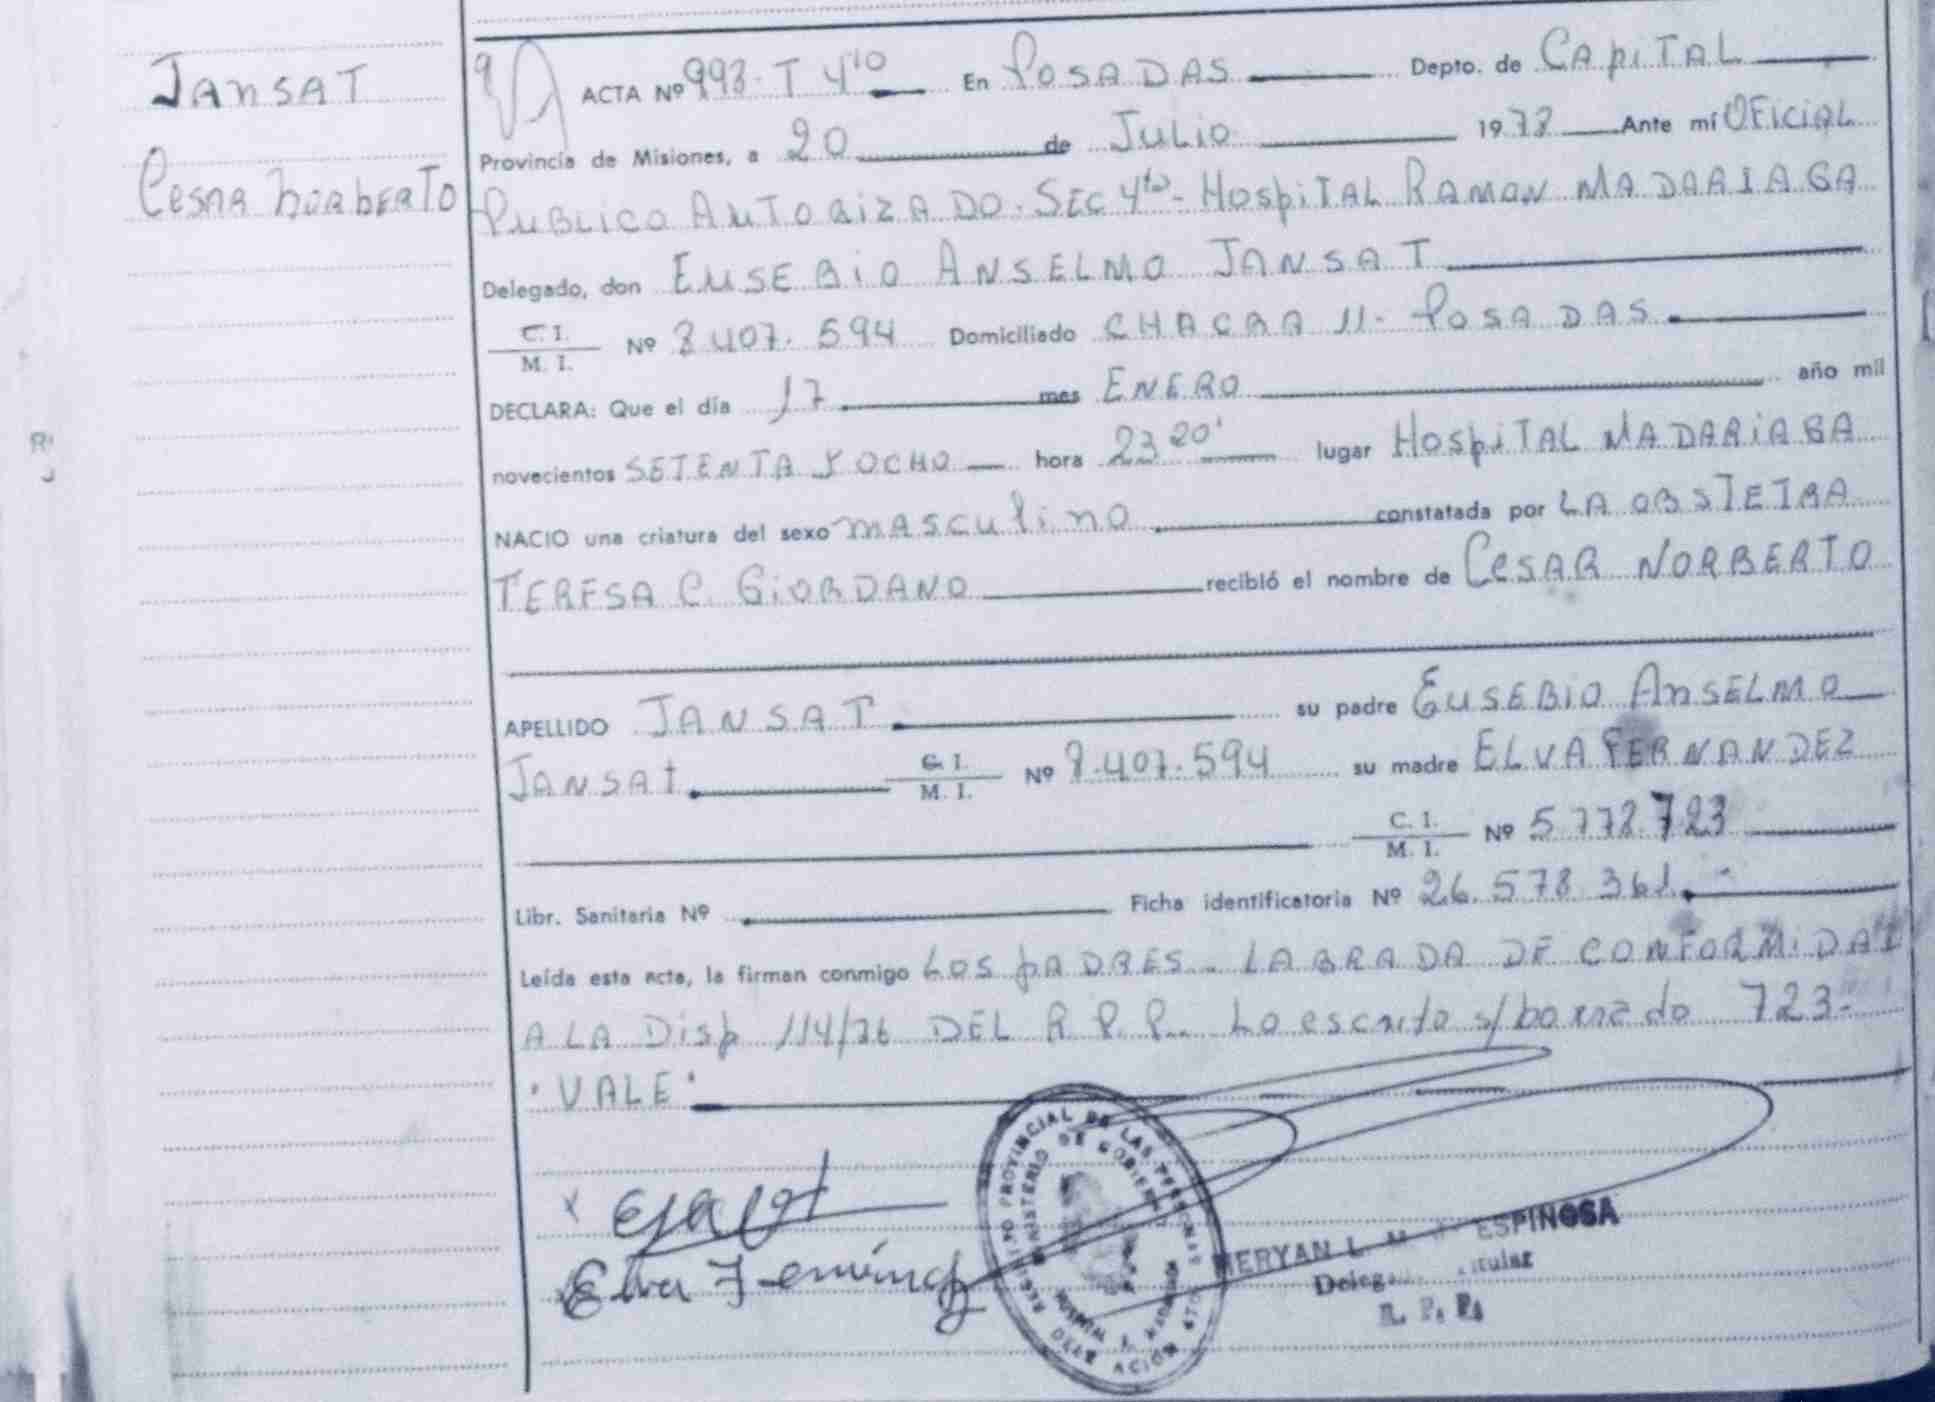 Jansat
Cesar Norberto
ACTA Nº 993. T 4to En POSADAS Depto. de CApiTAL
Provincia de Misiones, a 20 de JULIO 1978 Ante mí OFiCiAL
PUBLICO AUTORIZADO. SEC 4to - HospiTAL RAMON MADARIAGA
Delegado, don EUSEBIO ANSELMO JANSAT
C. I.
M. I. Nº 8.407.594 Domiciliado CHACRA 11 - POSADAS
DECLARA: Que el día 17 mes ENERO año mil
novecientos SETENTA Y OCHO hora 23 20' lugar HospiTAL MADARiAGA
NACIO una criatura del sexo masculino constatada por LA OBSTETRA
TERESA C. GiORDANO recibió el nombre de CESAR NORBERTO
APELLIDO JANSAT su padre EUSEBIO ANSELMO
JANSAT C. I.
M. I. Nº 8.407.594 su madre ELVA FERNANDEZ
C. I.
M. I. Nº 5.772.723
Libr. Sanitaria Nº Ficha identificatoria Nº 26.578.361.-
Leída esta acta, la firman conmigo LOS PADRES - LABRADA DE CONFORMIDAD
A LA Disp 114/76 DEL R.P.P. Lo escrito s/borrado 723-
"VALE"
Elva Fernández
REGISTRO PROVINCIAL DE LAS PERSONAS
MINISTERIO DE GOBIERNO
DELEGACIÓN 4TO
MERYAN L. ESPINOSA
R. P. P.